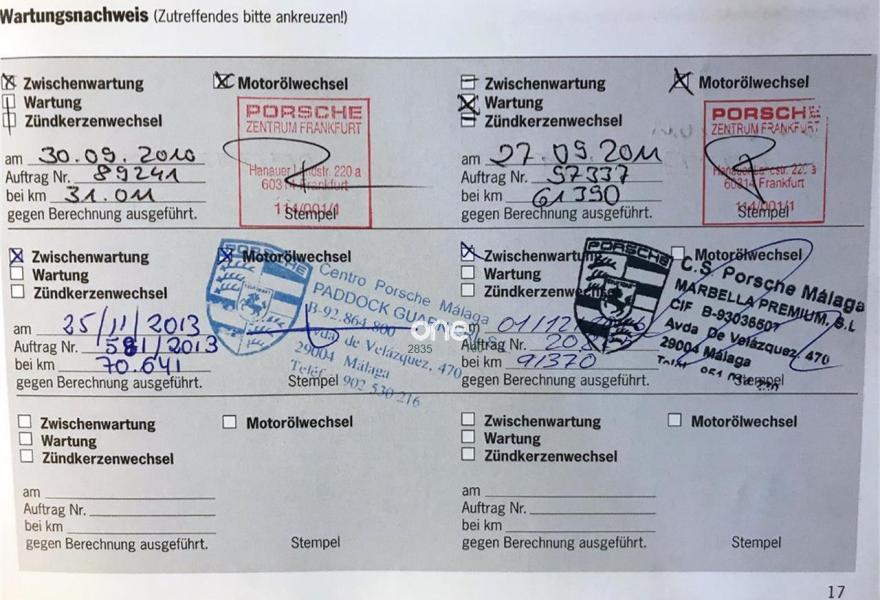 Wartungsnachweis (Zutreffendes bitte ankreuzen!)
Zwischenwartung Motorölwechsel
Wartung
Zündkerzenwechsel
am 30.09.2010
Auftrag Nr. 89241
bei km 31.011
gegen Berechnung ausgeführt. Stempel
PORSCHE
ZENTRUM FRANKFURT
Hanauer Landstr. 220 a
60314 Frankfurt
114/001/1
Zwischenwartung Motorölwechsel
Wartung
Zündkerzenwechsel
am 27.09.2011
Auftrag Nr. 97337
bei km 61390
gegen Berechnung ausgeführt. Stempel
PORSCHE
ZENTRUM FRANKFURT
60314 Frankfurt
114/001/1
Zwischenwartung Motorölwechsel
Wartung
Zündkerzenwechsel
am 25/11/2013
Auftrag Nr. 581/2013
bei km 70.641
gegen Berechnung ausgeführt. Stempel
PORSCHE
Centro Porsche Málaga
PADDOCK
B-92.864.800
Avda de Velázquez, 470
29004 Málaga
Teléf. 902 530 216
one
2835
Zwischenwartung Motorölwechsel
Wartung
Zündkerzenwechsel
01/12
Auftrag Nr.
bei km 91370
gegen Berechnung ausgeführt. Stempel
PORSCHE
C.S. Porsche Málaga
MARBELLA PREMIUM, S.L
CIF B-93036507
Avda De Velázquez, 470
29004 Málaga
Zwischenwartung Motorölwechsel
Wartung
Zündkerzenwechsel
am
Auftrag Nr.
bei km
gegen Berechnung ausgeführt. Stempel
Zwischenwartung Motorölwechsel
Wartung
Zündkerzenwechsel
am
Auftrag Nr.
bei km
gegen Berechnung ausgeführt. Stempel
17